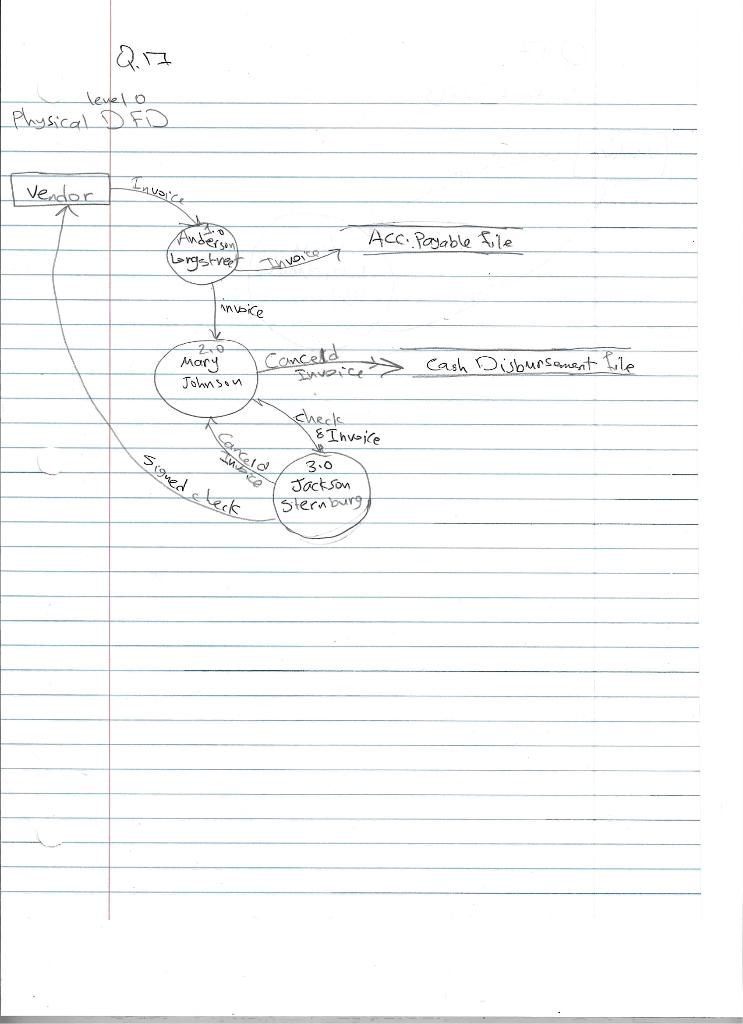 Q.17
level 0
Physical DFD
Vendor
Invoice
1.0
Anderson
Longstreet
Invoice
Acc. Payable file
invoice
2.0
Mary
Johnson
Canceld
Invoice
Cash Disbursement file
check
& Invoice
Canceld
Invoice
3.0
Jackson
Sternburg
Signed check